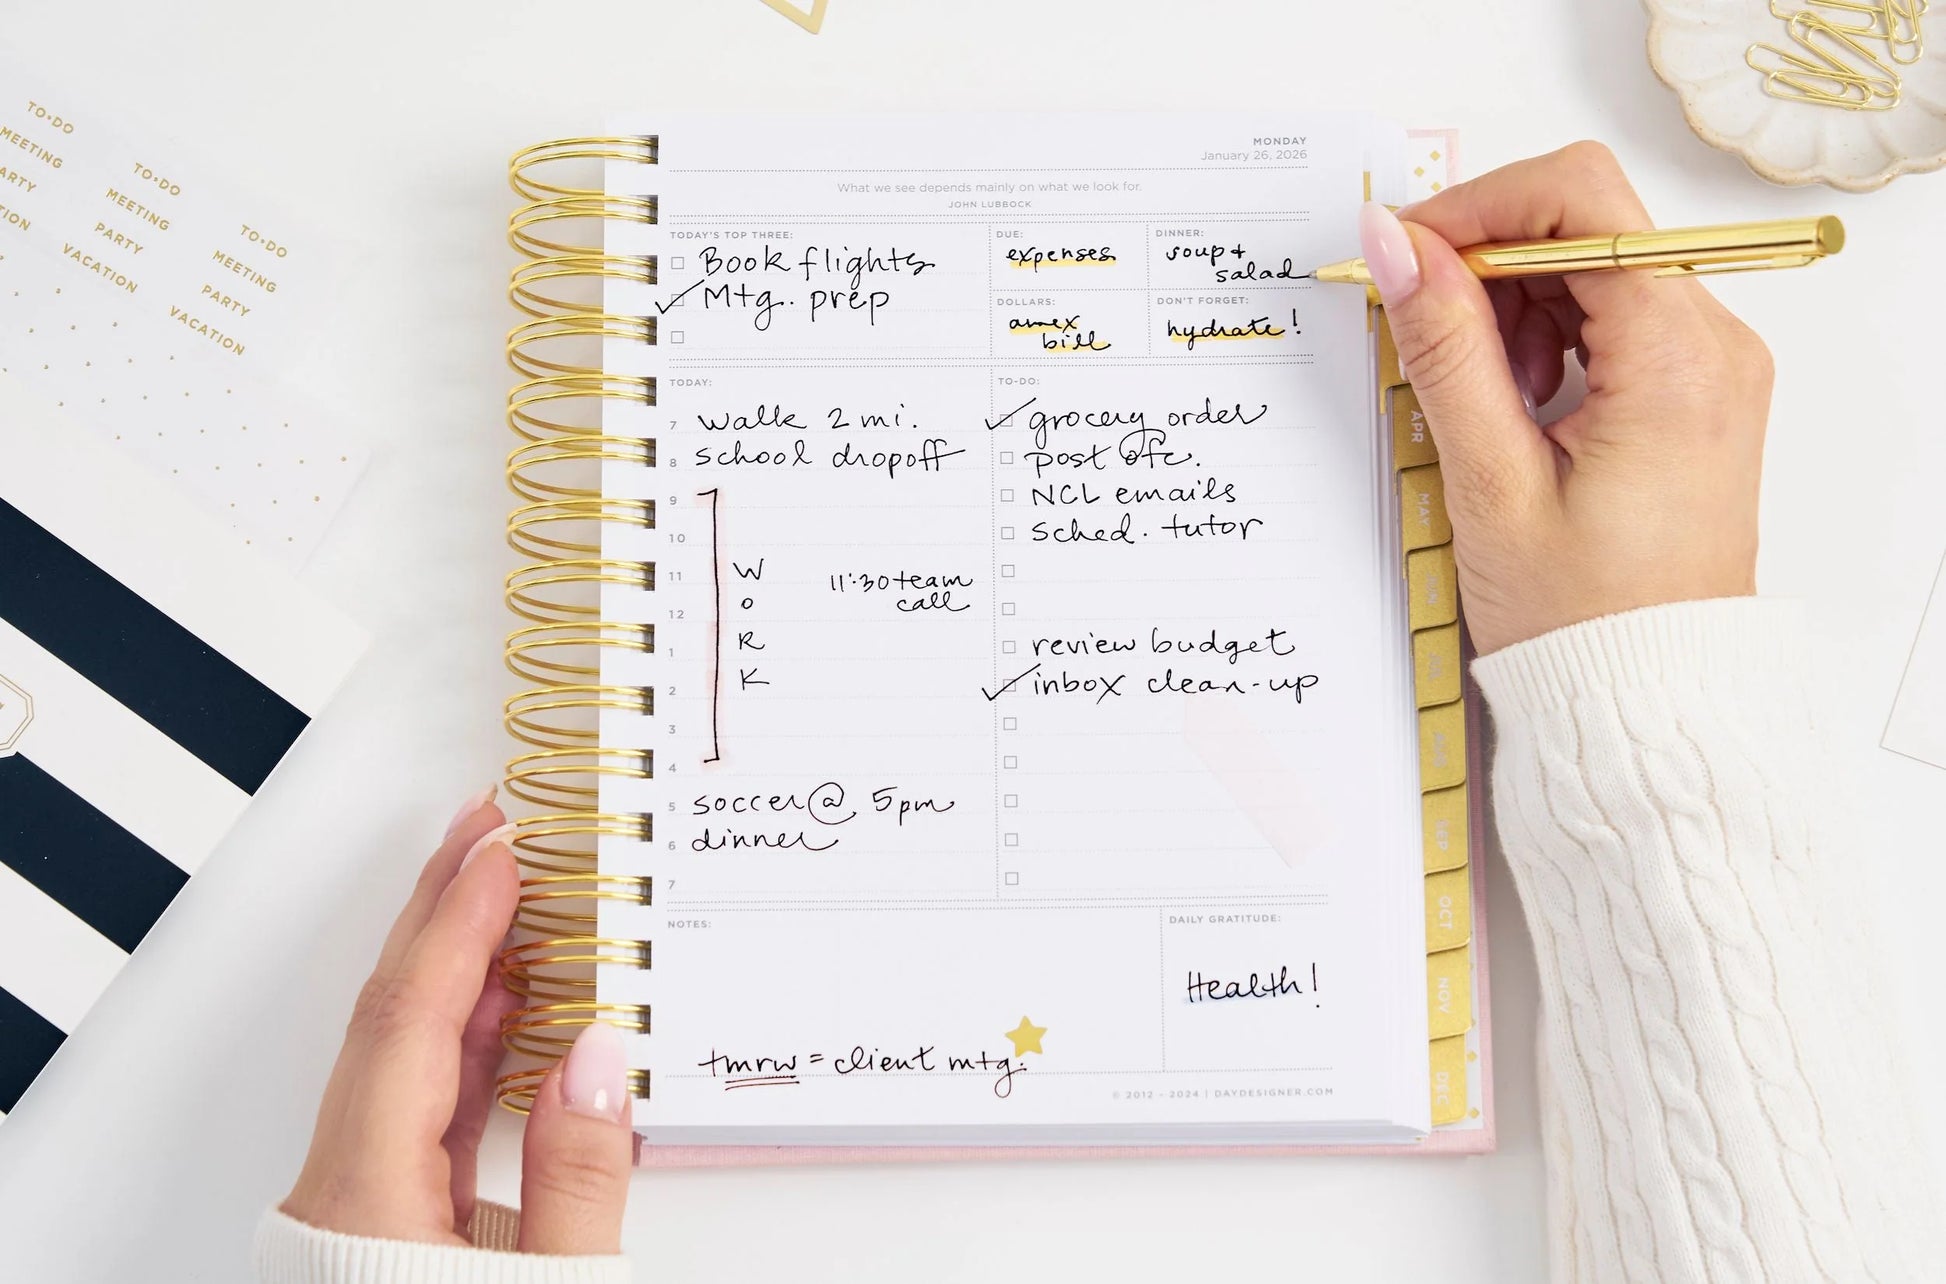 TO•DO
MEETING
PARTY
TO•DO
MEETING
PARTY
VACATION
TO•DO
MEETING
PARTY
VACATION
MONDAY
January 26, 2026
What we see depends mainly on what we look for.
JOHN LUBBOCK
TODAY'S TOP THREE:
Book flights
Mtg. prep
DUE:
expenses
DINNER:
soup +
salad
DOLLARS:
amex
bill
DON'T FORGET:
hydrate!
TODAY:
7 walk 2 mi.
8 school dropoff
9
10
11
12
1
2
3
4
WORK
11:30 team
call
5 soccer @ 5pm
6 dinner
7
TO-DO:
grocery order
post ofc.
NCL emails
sched. tutor
review budget
inbox clean-up
NOTES:
tmrw = client mtg.
DAILY GRATITUDE:
Health!
© 2012 - 2024 | DAYDESIGNER.COM
APR
MAY
JUN
JUL
AUG
SEP
OCT
NOV
DEC